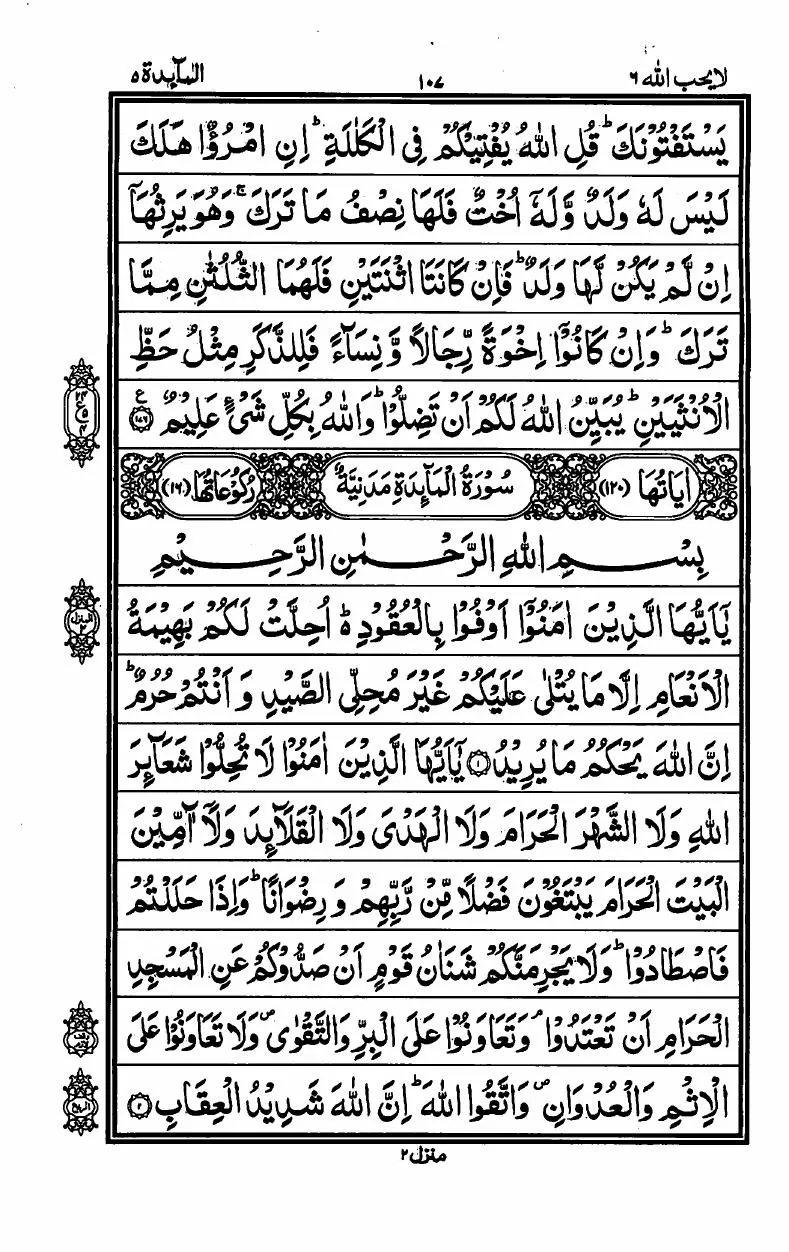 لا يحب الله ٦
١٠٧
المآئدة ٥
يَسْتَفْتُوْنَكَ ؕ قُلِ اللّٰهُ يُفْتِيْكُمْ فِى الْكَلٰلَةِ ؕ اِنِ امْرُؤٌا هَلَكَ
لَيْسَ لَهٗ وَلَدٌ وَّلَهٗۤ اُخْتٌ فَلَهَا نِصْفُ مَا تَرَكَ ۚ وَهُوَ يَرِثُهَاۤ
اِنْ لَّمْ يَكُنْ لَّهَا وَلَدٌ ؕ فَاِنْ كَانَتَا اثْنَتَيْنِ فَلَهُمَا الثُّلُثٰنِ مِمَّا
تَرَكَ ؕ وَاِنْ كَانُوْۤا اِخْوَةً رِّجَالًا وَّنِسَآءً فَلِلذَّكَرِ مِثْلُ حَظِّ
الْاُنْثَيَيْنِ ؕ يُبَيِّنُ اللّٰهُ لَكُمْ اَنْ تَضِلُّوْا ؕ وَاللّٰهُ بِكُلِّ شَىْءٍ عَلِيْمٌ ﴿۱۷۶﴾ ع
اٰيَاتُهَا (١٢٠) سُوْرَةُ الْمَآئِدَةِ مَدَنِيَّةٌ رُكُوْعَاتُهَا (١٦)
بِسْمِ اللّٰهِ الرَّحْمٰنِ الرَّحِيْمِ
يٰۤاَيُّهَا الَّذِيْنَ اٰمَنُوْۤا اَوْفُوْا بِالْعُقُوْدِ ؕ اُحِلَّتْ لَكُمْ بَهِيْمَةُ
المنزل ٢
الْاَنْعَامِ اِلَّا مَا يُتْلٰى عَلَيْكُمْ غَيْرَ مُحِلِّى الصَّيْدِ وَاَنْتُمْ حُرُمٌ ؕ
اِنَّ اللّٰهَ يَحْكُمُ مَا يُرِيْدُ ﴿۱﴾ يٰۤاَيُّهَا الَّذِيْنَ اٰمَنُوْا لَا تُحِلُّوْا شَعَآئِرَ
اللّٰهِ وَلَا الشَّهْرَ الْحَرَامَ وَلَا الْهَدْىَ وَلَا الْقَلَآئِدَ وَلَاۤ آٰمِّيْنَ
الْبَيْتَ الْحَرَامَ يَبْتَغُوْنَ فَضْلًا مِّنْ رَّبِّهِمْ وَرِضْوَانًا ؕ وَاِذَا حَلَلْتُمْ
فَاصْطَادُوْا ؕ وَلَا يَجْرِمَنَّكُمْ شَنَاٰنُ قَوْمٍ اَنْ صَدُّوْكُمْ عَنِ الْمَسْجِدِ
الْحَرَامِ اَنْ تَعْتَدُوْا ۘ وَتَعَاوَنُوْا عَلَى الْبِرِّ وَالتَّقْوٰى ۖ وَلَا تَعَاوَنُوْا عَلَى
الْاِثْمِ وَالْعُدْوَانِ ۖ وَاتَّقُوا اللّٰهَ ؕ اِنَّ اللّٰهَ شَدِيْدُ الْعِقَابِ ﴿۲﴾
منزل ٢